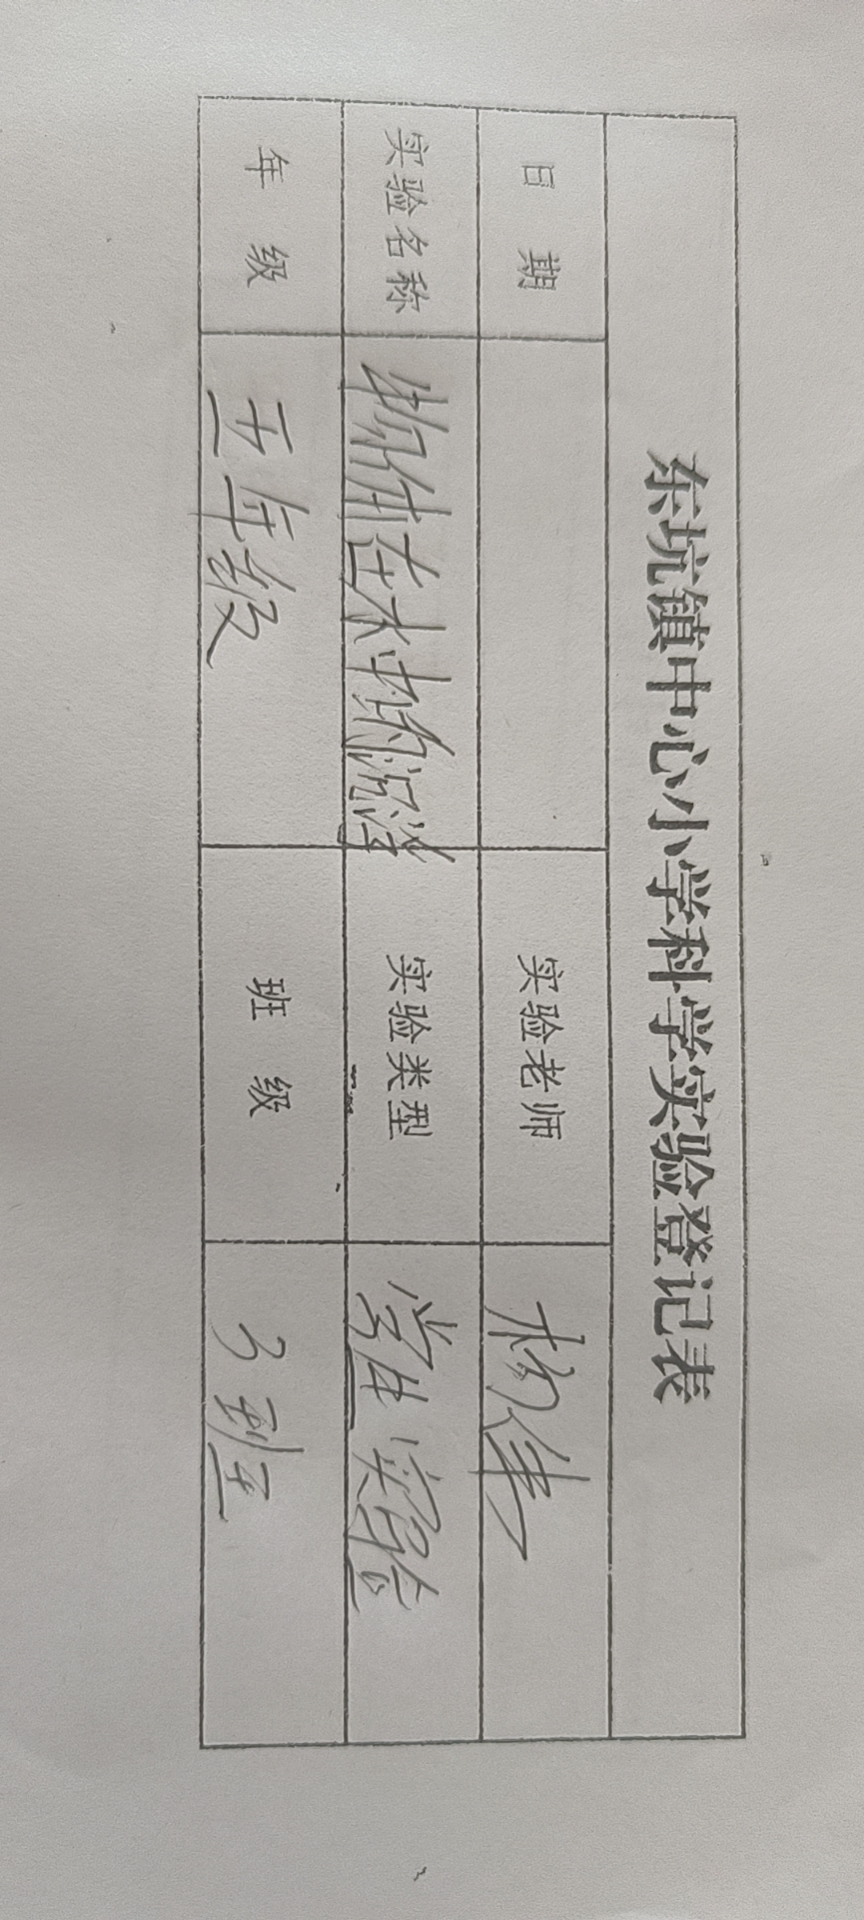 东坑镇中心小学科学实验登记表
日 期 实验老师 杨伟
实验名称 物体在水中的沉浮 实验类型 学生实验
年 级 五年级 班 级 3班